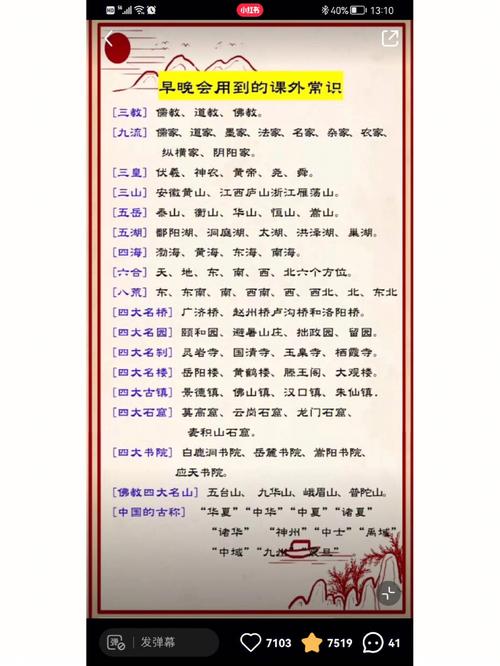 小红书
40%
13:10
早晚会用到的课外常识
[三教] 儒教、道教、佛教。
[九流] 儒家、道家、墨家、法家、名家、杂家、农家、
纵横家、阴阳家。
[三皇] 伏羲、神农、黄帝、尧、舜。
[三山] 安徽黄山、江西庐山浙江雁荡山。
[五岳] 泰山、衡山、华山、恒山、嵩山。
[五湖] 鄱阳湖、洞庭湖、太湖、洪泽湖、巢湖。
[四海] 渤海、黄海、东海、南海。
[六合] 天、地、东、南、西、北六个方位。
[八荒] 东、东南、南、西南、西、西北、北、东北
[四大名桥] 广济桥、赵州桥卢沟桥和洛阳桥。
[四大名园] 颐和园、避暑山庄、拙政园、留园。
[四大名刹] 灵岩寺、国清寺、玉泉寺、栖霞寺。
[四大名楼] 岳阳楼、黄鹤楼、滕王阁、大观楼。
[四大古镇] 景德镇、佛山镇、汉口镇、朱仙镇。
[四大石窟] 莫高窟、云岗石窟、龙门石窟、
麦积山石窟。
[四大书院] 白鹿洞书院、岳麓书院、嵩阳书院、
应天书院。
[佛教四大名山] 五台山、九华山、峨眉山、普陀山。
[中国的古称] “华夏”“中华”“中夏”“诸夏”
“诸华” “神州”“中士”“禹域”
“中域”“九州”“震旦”
弹 发弹幕
7103
7519
41